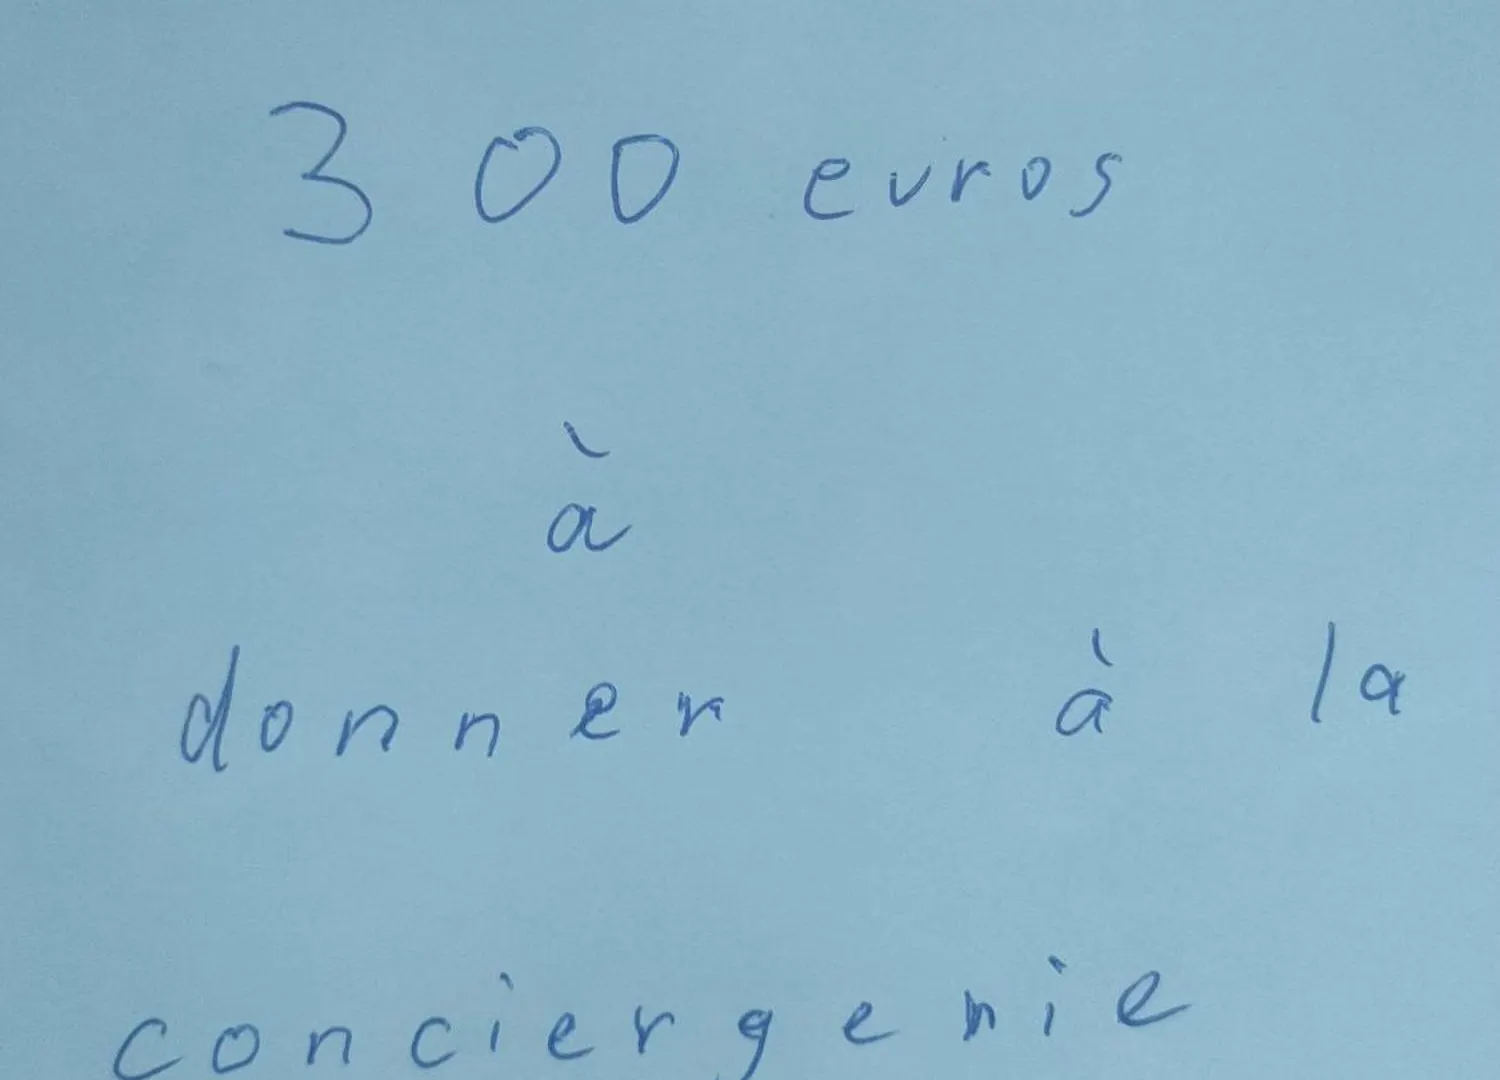 300 euros
à
donner à la
conciergerie